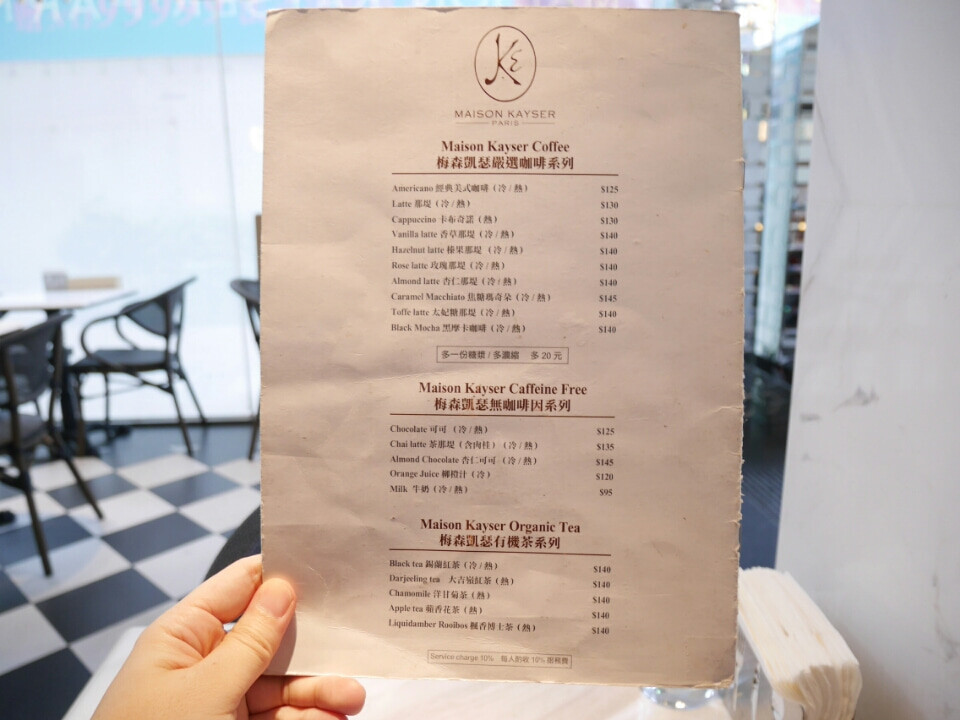 KE
MAISON KAYSER
PARIS
Maison Kayser Coffee
梅森凱瑟嚴選咖啡系列
Americano 經典美式咖啡（冷 / 熱） $125
Latte 那堤（冷 / 熱） $130
Cappuccino 卡布奇諾（熱） $130
Vanilla latte 香草那堤（冷 / 熱） $140
Hazelnut latte 榛果那堤（冷 / 熱） $140
Rose latte 玫瑰那堤（冷 / 熱） $140
Almond latte 杏仁那堤（冷 / 熱） $140
Caramel Macchiato 焦糖瑪奇朵（冷 / 熱） $145
Toffe latte 太妃糖那堤（冷 / 熱） $140
Black Mocha 黑摩卡咖啡（冷 / 熱） $140
多一份糖漿 / 多濃縮 多 20 元
Maison Kayser Caffeine Free
梅森凱瑟無咖啡因系列
Chocolate 可可（冷 / 熱） $125
Chai latte 茶那堤（含肉桂）（冷 / 熱） $135
Almond Chocolate 杏仁可可（冷 / 熱） $145
Orange Juice 柳橙汁（冷） $120
Milk 牛奶（冷 / 熱） $95
Maison Kayser Organic Tea
梅森凱瑟有機茶系列
Black tea 錫蘭紅茶（冷 / 熱） $140
Darjeeling tea 大吉嶺紅茶（熱） $140
Chamomile 洋甘菊茶（熱） $140
Apple tea 蘋香花茶（熱） $140
Liquidamber Rooibos 楓香博士茶（熱） $140
Service charge 10% 每人酌收 10% 服務費